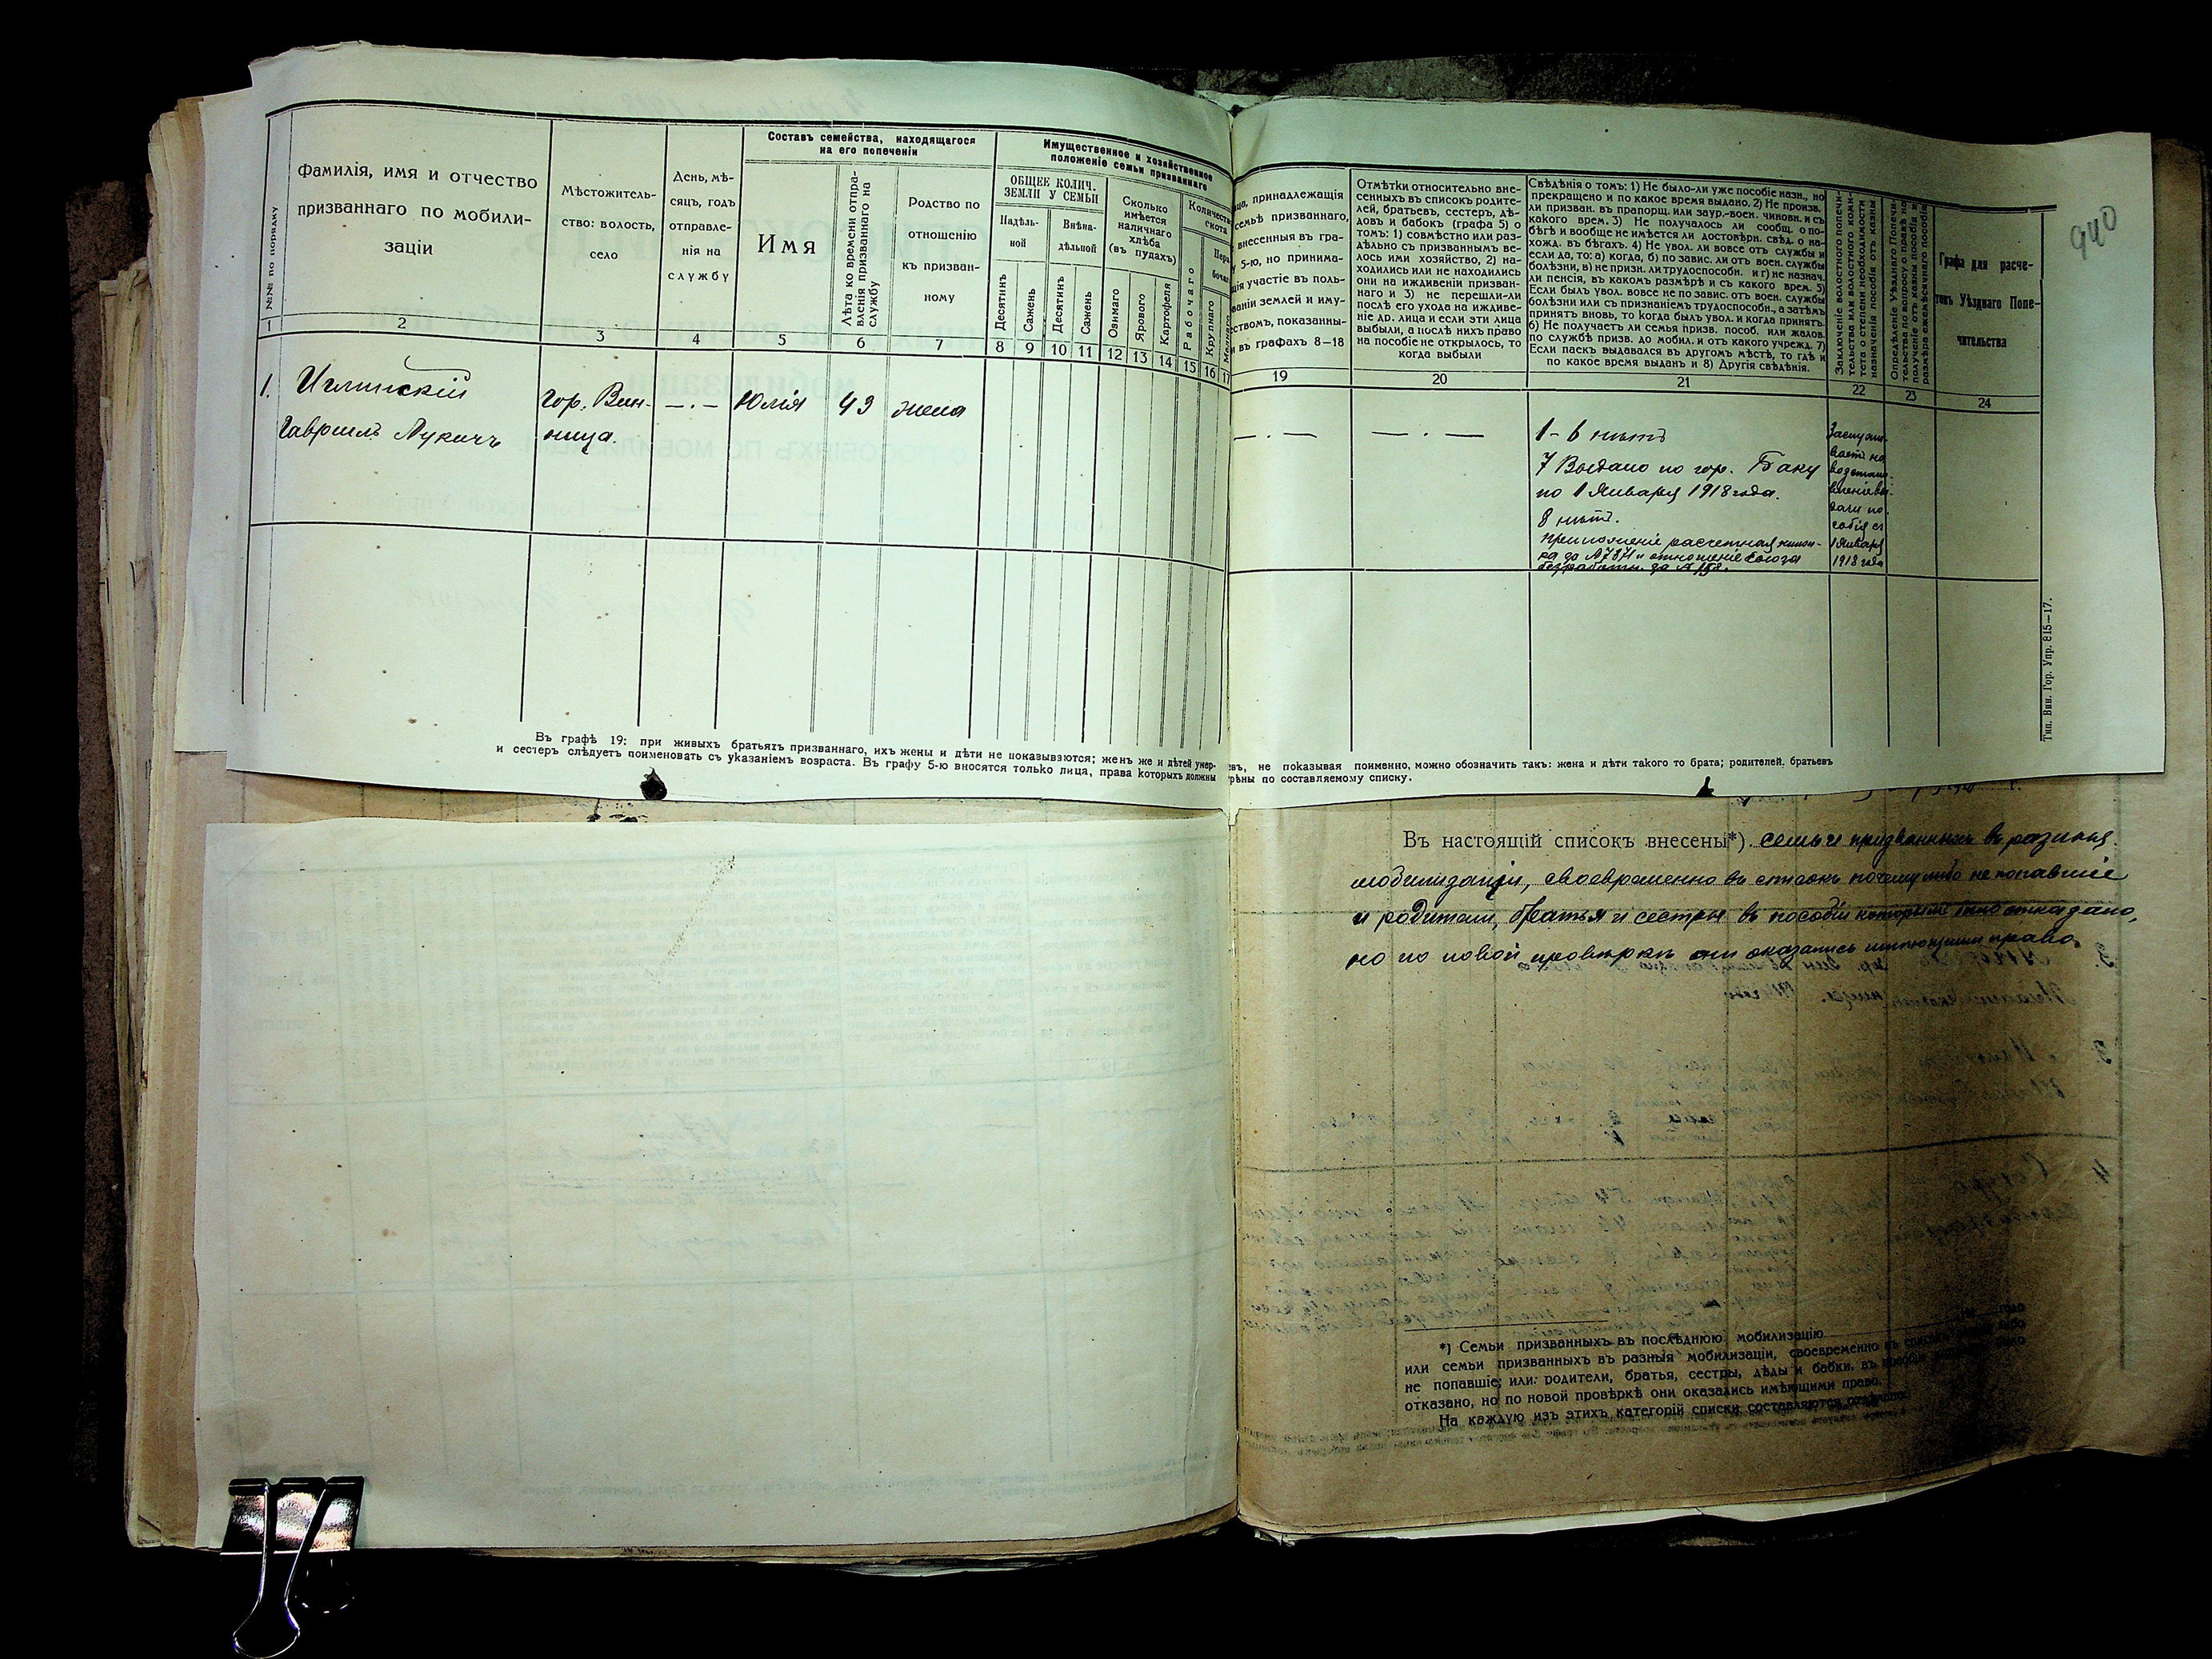 940
№№ по порядку
Фамилія, имя и отчество
призваннаго по мобили-
заціи
Мѣстожитель-
ство: волость,
село
День, мѣ-
сяцъ, годъ
отправле-
нія на
службу
Составъ семейства, находящагося
на его попеченіи
Имя
Лѣта ко времени отпра-
вленія призваннаго на
службу
Родство по
отношенію
къ призван-
ному
Имущественное и хозяйственное
положеніе семьи призваннаго
ОБЩЕЕ КОЛИЧ.
ЗЕМЛИ У СЕМЬИ
Надѣль-
ной
Внѣна-
дѣльной
Десятинъ
Сажень
Десятинъ
Сажень
Сколько
имѣется
наличнаго
хлѣба
(въ пудахъ)
Озимаго
Ярового
Картофеля
Количество
скота
Рабочаго
Крупнаго
принадлежащія
семьѣ призваннаго,
внесенныя въ гра-
5-ю, но принима-
участіе въ поль-
землей и иму-
показанны-
въ графахъ 8—18
Отмѣтки относительно вне-
сенныхъ въ списокъ родите-
лей, братьевъ, сестеръ, дѣ-
довъ и бабокъ (графа 5) о
томъ: 1) совмѣстно или раз-
дѣльно съ призваннымъ ве-
лось ими хозяйство, 2) на-
ходились или не находились
они на иждивеніи призван-
наго и 3) не перешли-ли
послѣ его ухода на иждиве-
ніе др. лица и если эти лица
выбыли, а послѣ нихъ право
на пособіе не открылось, то
когда выбыли
Свѣдѣнія о томъ: 1) Не было-ли уже пособіе назн., но
прекращено и по какое время выдано. 2) Не произв.
ли призван. въ прапорщ. или заур.-воен. чиновн. и съ
какого врем. 3) Не получалось ли сообщ. о по-
бѣгѣ и вообще не имѣется ли достовѣрн. свѣд. о на-
хожд. въ бѣгахъ. 4) Не увол. ли вовсе отъ службы и
если да, то: а) когда, б) по завис. ли отъ воен. службы
болѣзни, в) не призн. ли трудоспособн. и г) не назнач.
ли пенсія, въ какомъ размѣрѣ и съ какого врем. 5)
Если былъ увол. вовсе не по завис. отъ воен. службы
болѣзни или съ признаніемъ трудоспособн., а затѣмъ
принятъ вновь, то когда былъ увол. и когда принятъ.
6) Не получаетъ ли семья призв. пособ. или жалов.
по службѣ призв. до мобил. и отъ какого учрежд. 7)
Если паекъ выдавался въ другомъ мѣстѣ, то гдѣ и
по какое время выданъ и 8) Другія свѣдѣнія.
Заключеніе волостного попечи-
тельства или волостного коми-
тета о степени необходимости
назначенія пособія отъ казны
Опредѣленіе Уѣзднаго Попечи-
тельства по вопросу о правѣ на
полученіе отъ казны пособія и
размѣра ежемѣсячнаго пособія
Графа для расче-
товъ Уѣзднаго Попе-
чительства
1 2 3 4 5 6 7 8 9 10 11 12 13 14 15 16 17 19 20 21 22 23 24
1. Иглинскій гор. Вин- —.— Юлія 43 жена
Гавріилъ Лукичъ ница.
—.— —.—
1-6 нѣтъ
7 Выдано по гор. Баку
по 1 Января 1918 года.
8 нѣтъ.
Приложеніе расчетная книж-
ка за № 7871 и отношеніе Союза
Заслужи-
ваетъ на
возстано-
вленіе вы-
дачи по-
собія съ
1 Января
1918 года
Въ графѣ 19: при живыхъ братьяхъ призваннаго, ихъ жены и дѣти не показываются; женъ же и дѣтей умер-
евъ, не показывая поименно, можно обозначить такъ: жена и дѣти такого то брата; родителей, братьевъ
и сестеръ слѣдуетъ поименовать съ указаніемъ возраста. Въ графу 5-ю вносятся только лица, права которыхъ должны
по составляемому списку.
Тип. Вин. Гор. Упр. 815—17.
Въ настоящій списокъ внесены*) семьи призванныхъ въ разныя
мобилизаціи, своевременно въ списокъ почему либо не попавшіе
и родители, братья и сестры въ пособіи которымъ было отказано,
но по новой провѣркѣ они оказались имѣющими право.
*) Семьи призванныхъ въ послѣднюю мобилизацію
или семьи призванныхъ въ разныя мобилизаціи, своевременно въ
не попавшіе; или: родители, братья, сестры, дѣды и бабки, въ
отказано, но по новой провѣркѣ они оказались имѣющими право.
На каждую изъ этихъ категорій списки составляются отдѣльно